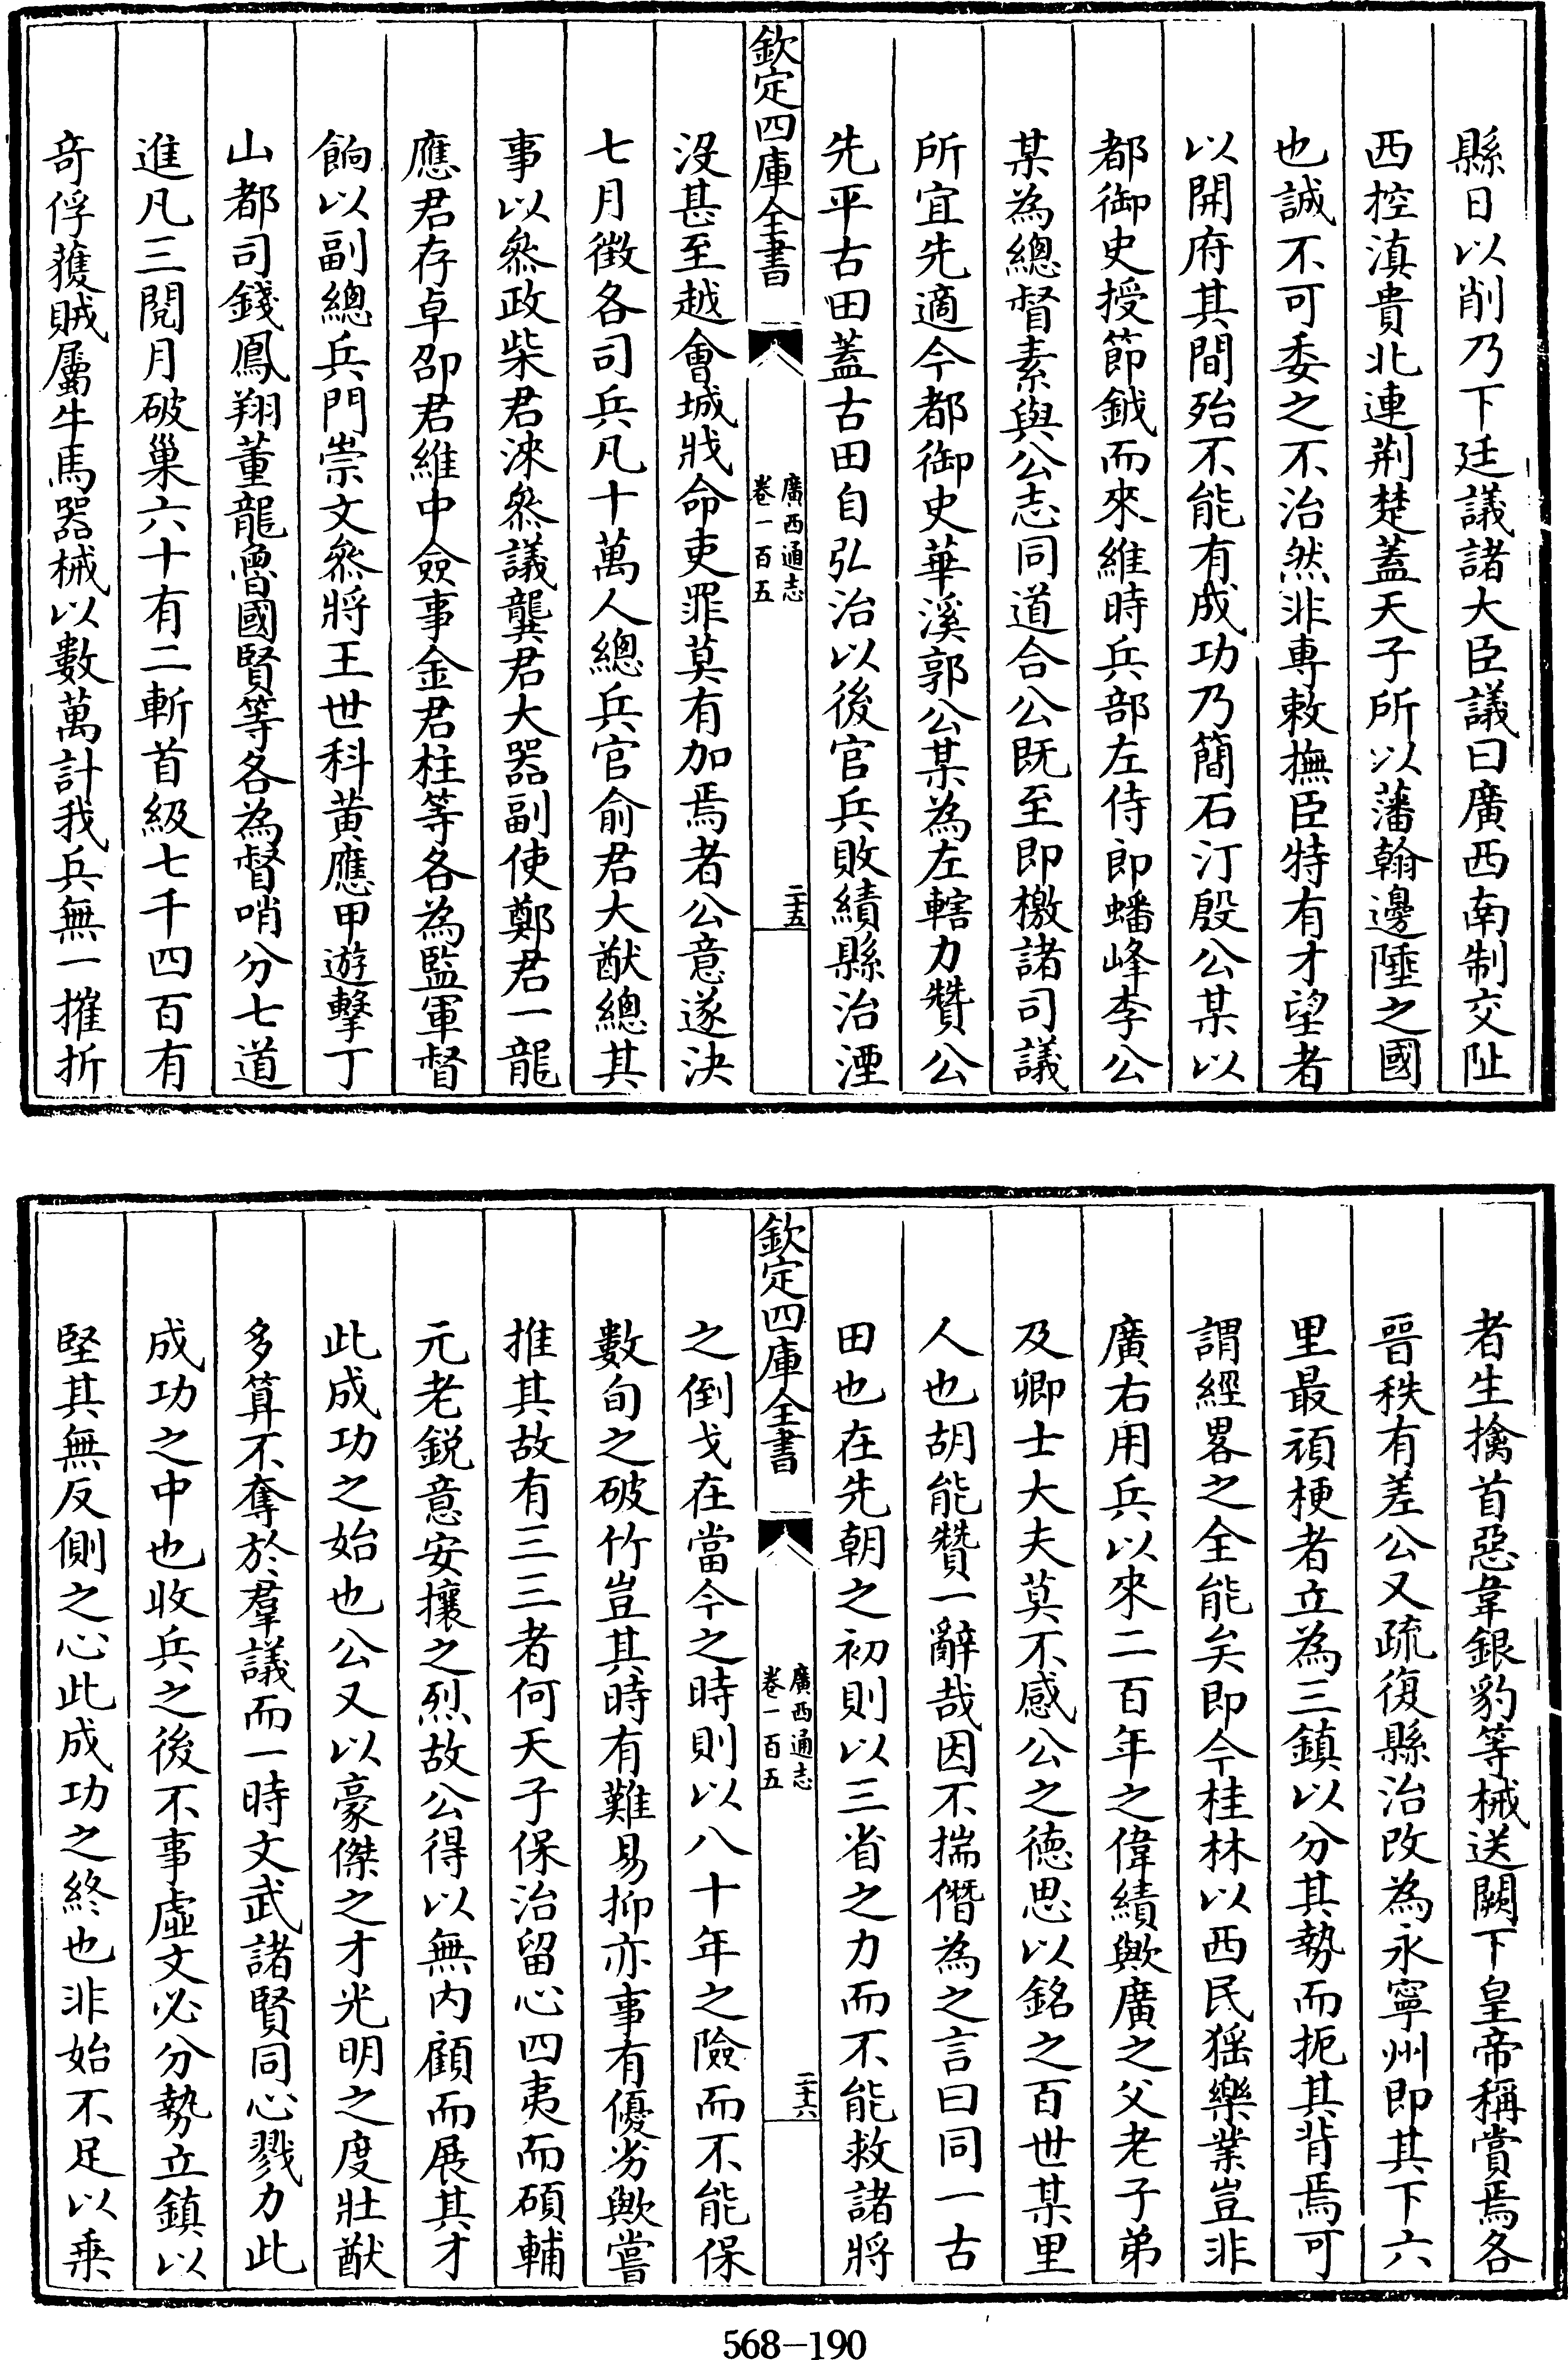 縣日以削乃下廷議諸大臣議曰廣西南制交阯
西控滇貴北連荆楚蓋天子所以藩翰邊陲之國
也誠不可委之不治然非専敕撫臣特有才望者
以開府其間殆不能有成功乃簡石汀殷公某以
都御史授節鉞而來維時兵部左侍郎蟠峰李公
某為總督素與公志同道合公既至即檄諸司議
所宜先適今都御史華溪郭公某為左轄力贊公
先平古田蓋古田自弘治以後官兵敗績縣治湮
欽定四庫全書
廣西通志
卷一百五
二十五
沒甚至越會城戕命吏罪莫有加焉者公意遂決
七月徵各司兵凡十萬人總兵官俞君大猷總其
事以叅政柴君淶叅議龔君大器副使鄭君一龍
應君存卓卲君維中僉事金君柱等各為監軍督
餉以副總兵門崇文叅將王世科黄應甲遊擊丁
山都司錢鳳翔董龍魯國賢等各為督哨分七道
進凡三閱月破巢六十有二斬首級七千四百有
奇俘獲賊屬牛馬器械以數萬計我兵無一摧折
者生擒首惡韋銀豹等械送闕下皇帝稱賞焉各
晉秩有差公又疏復縣治改為永寧州即其下六
里最頑梗者立為三鎮以分其勢而扼其背焉可
謂經畧之全能矣即今桂林以西民猺樂業豈非
廣右用兵以來二百年之偉績歟廣之父老子弟
及卿士大夫莫不感公之德思以銘之百世某里
人也胡能贊一辭哉因不揣僭為之言曰同一古
田也在先朝之初則以三省之力而不能救諸將
欽定四庫全書
廣西通志
卷一百五
二十六
之倒戈在當今之時則以八十年之險而不能保
數旬之破竹豈其時有難易抑亦事有優劣歟嘗
推其故有三三者何天子保治留心四夷而碩輔
元老銳意安攘之烈故公得以無内顧而展其才
此成功之始也公又以豪傑之才光明之度壯猷
多算不奪於羣議而一時文武諸賢同心戮力此
成功之中也收兵之後不事虛文必分勢立鎮以
堅其無反側之心此成功之終也非始不足以乗
568-190